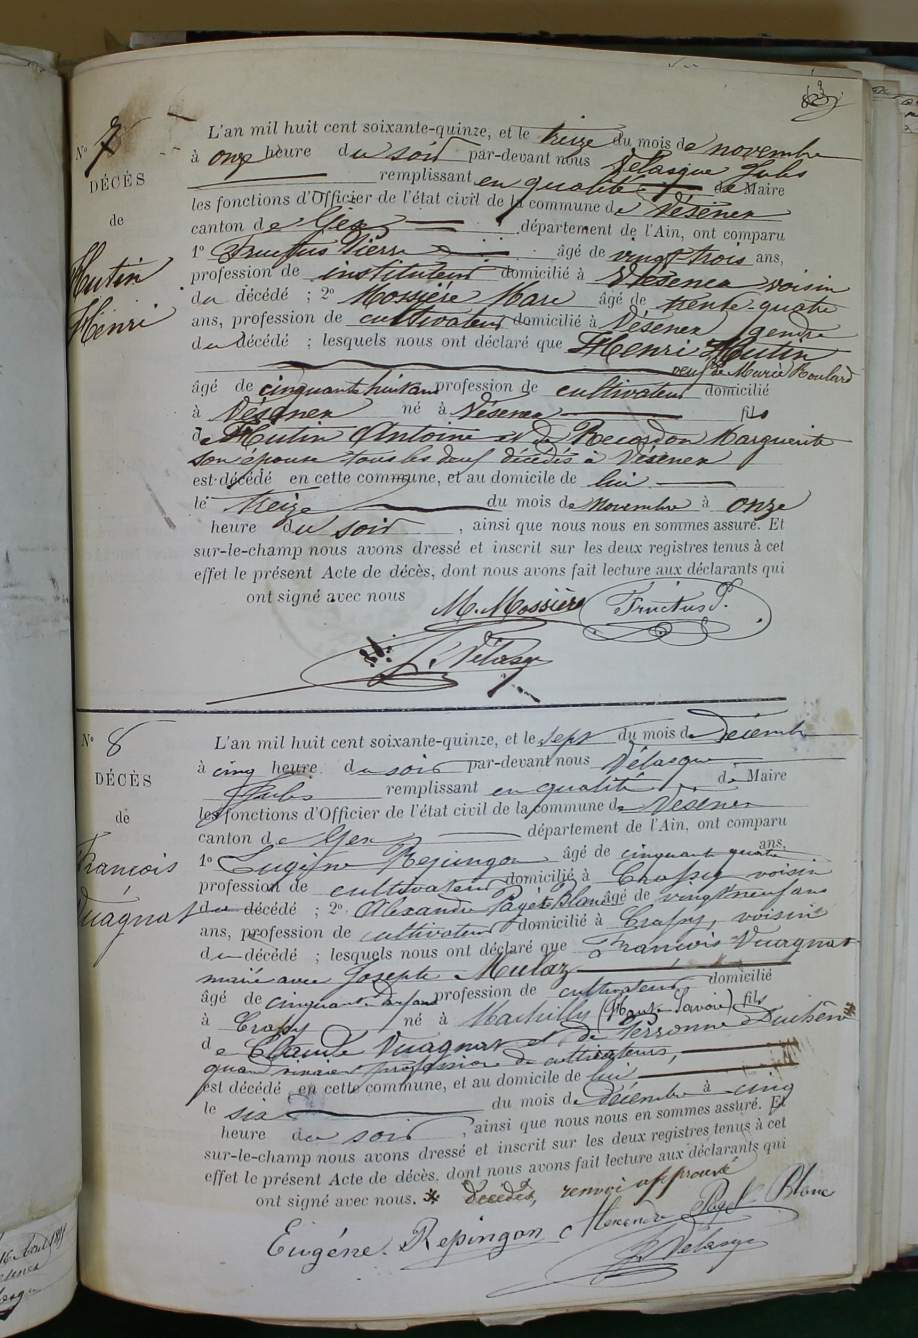 N° 7
DÉCÈS
de
Hutin
Henri
L'an mil huit cent soixante-quinze, et le treize du mois de novembre
à onze heure du soir par-devant nous Vélasque Jules
remplissant en qualité de Maire
les fonctions d'Officier de l'état civil de la commune de Vésenex
canton de Gex département de l'Ain, ont comparu
1° Fructus Pierre âgé de vingt trois ans,
profession de instituteur domicilié à Vésenex voisin
du décédé ; 2° Mossière Marc âgé de trente-quatre
ans, profession de cultivateur domicilié à Vésenex gendre
du décédé ; lesquels nous ont déclaré que Henri Hutin
veuf de Marie Roulard
âgé de cinquante huit ans profession de cultivateur domicilié
à Vésenex né à Vésenex fils
de Hutin Antoine et de Recordon Marguerite
son épouse tous les deux décédés à Vésenex
est décédé en cette commune, et au domicile de lui
le treize du mois de novembre à onze
heure du soir, ainsi que nous nous en sommes assuré. Et
sur-le-champ nous avons dressé et inscrit sur les deux registres tenus à cet
effet le présent Acte de décès, dont nous avons fait lecture aux déclarants qui
ont signé avec nous
M. Mossière Fructus P.
J. Vélasque
N° 8
DÉCÈS
de
Francois
Vuagnat
L'an mil huit cent soixante-quinze, et le sept du mois de Décembre
à cinq heure du soir par-devant nous Vélasque
Jules remplissant en qualité de Maire
les fonctions d'Officier de l'état civil de la commune de Vésenex
canton de Gex département de l'Ain, ont comparu
1° Eugène Repingon âgé de cinquante quatre ans,
profession de cultivateur domicilié à Crassy voisin
du décédé ; 2° Alexandre Pagel Blanc âgé de vingt neuf ans
ans, profession de cultivateur domicilié à Crassy, voisin
du décédé ; lesquels nous ont déclaré que Francois Vuagnat
marié avec Josephte Mulaz
âgé de cinquante profession de cultivateur domicilié
à Crassy né à Machilly (Haute-Savoie) fils
de Claude Vuagnat et de Perronne Duchêne *
quand vivaient profession de cultivateurs,
est décédé en cette commune, et au domicile de lui
le six du mois de décembre à cinq
heure du soir, ainsi que nous nous en sommes assuré. Et
sur-le-champ nous avons dressé et inscrit sur les deux registres tenus à cet
effet le présent Acte de décès, dont nous avons fait lecture aux déclarants qui
ont signé avec nous. * décédés, renvoi approuvé
Eugéne. Repingon Alexandre Pagel Blanc
J. Vélasque